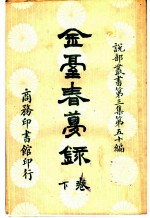 說部叢書第三集第五十編
金臺春夢錄
卷下
商務印書館印行